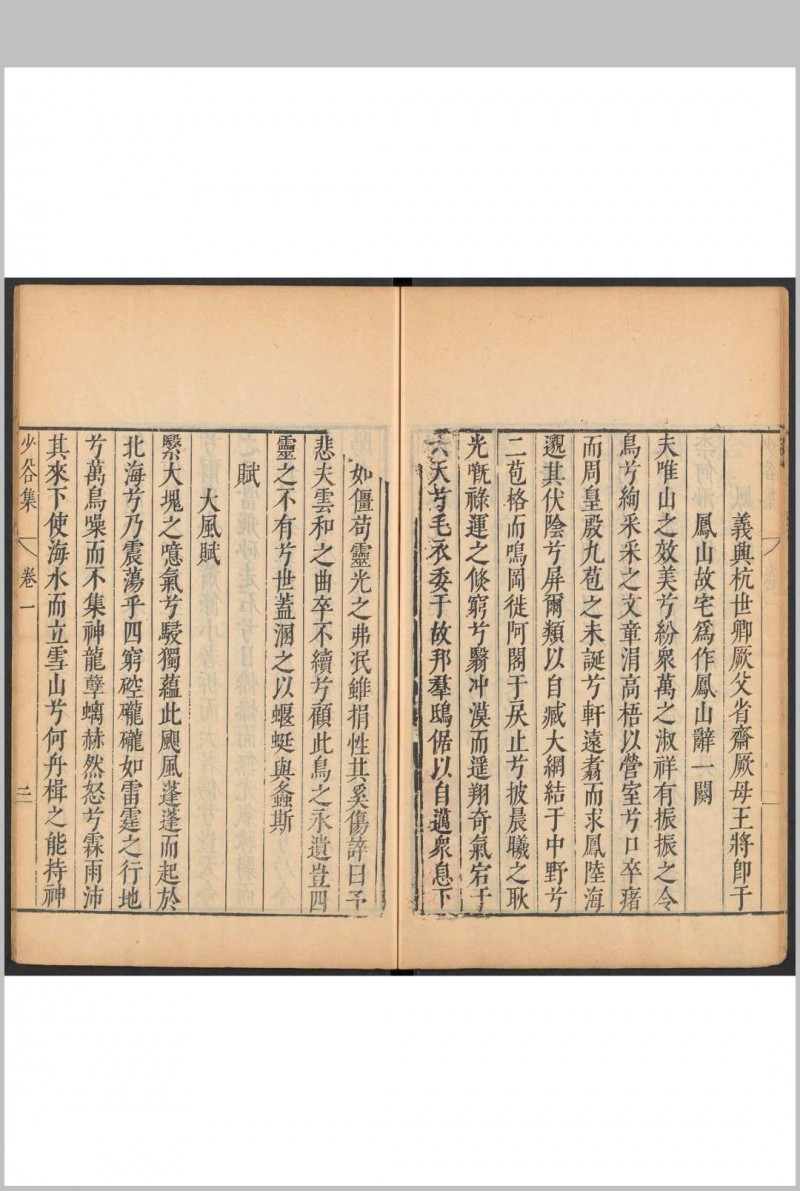 義興杭世卿厥父省齋厥母王將卽于
鳳山故宅爲作鳳山辭一闋
夫唯山之效美兮紛衆萬之淑祥有振振之令
鳥兮絢采采之文章涓高梧以營室兮口卒瘏
而周皇殿九苞之未誕兮軒遠翥而求鳳陸海
邈其伏陰兮屏爾類以自臧大網結于中野兮
二苞格而鳴岡徙阿閣于戾止兮披晨曦之耿
光嘅祿運之倏窮兮翳冲漠而遥翔奇氣宕于
六天兮毛衣委于故邦羣鴟倨以自適衆息下
如僵苟靈光之弗泯雖捐性其奚傷誶曰予
悲夫雲和之曲卒不續兮顧此鳥之永遺豈四
靈之不有兮世蓋溷之以蝘蜓與螽斯
賦
大風賦
繄大塊之噫氣兮駿獨蘊此颶風蓬蓬而起於
北海兮乃震蕩乎四窮硿礲礲如雷霆之行地
兮萬鳥噪而不集神龍孽螭赫然怒兮霖雨沛
其來下使海水而立雪山兮何舟楫之能持神
少谷集
卷一
三